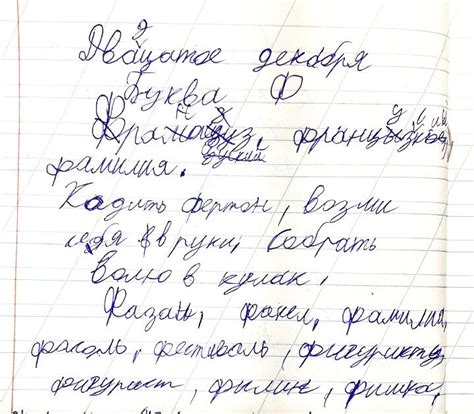 Двацатое декабря
Буква Ф
француз,
фамилия.
Ходить фертом, возми
себя в руки, собрать
волю в кулак.
Фазан, факел, фамилия,
фасоль, фестиваль,
фигурист, филин, фишка,